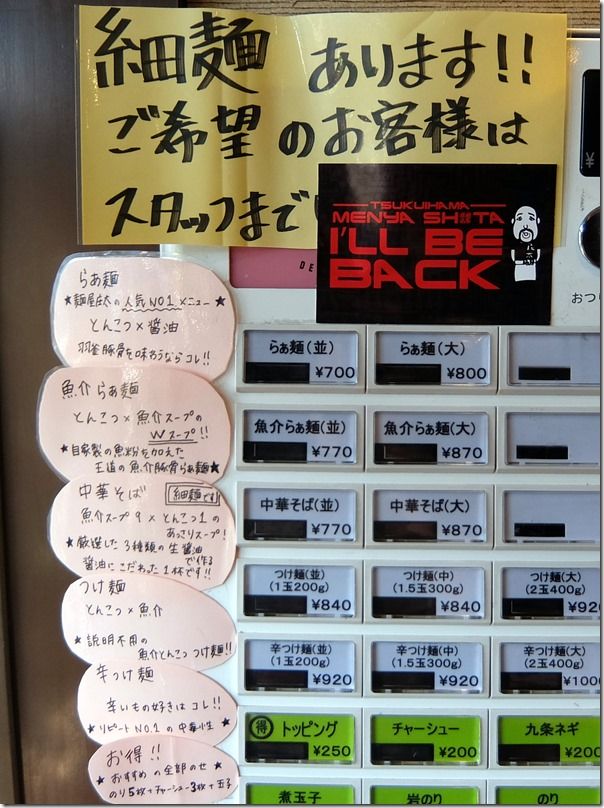 細麺 あります!!
ご希望のお客様は
スタッフまで
TSUKUIHAMA
MENYA SH TA
I'LL BE
BACK
DE
¥
おつり
らぁ麺
★麺屋庄太の人気NO.1メニュー★
とんこつ×醤油
豚骨を味わうならコレ!!
魚介らぁ麺
とんこつ×魚介スープの
Wスープ!!
★自家製の魚粉を加えた
王道の魚介豚骨らぁ麺★
中華そば 細麺です
魚介スープ9×とんこつ1の
あっさりスープ!
★厳選した3種類の生醤油で作る
醤油にこだわった1杯です!!
つけ麺
とんこつ×魚介
★説明不用の
魚介とんこつつけ麺!!
辛つけ麺
辛いもの好きはコレ!!
★リピートNO.1の中毒性★
お得!!
★おすすめの全部のせ★
のり5枚+チャーシュー3枚+玉子
らぁ麺(並)
¥700
らぁ麺(大)
¥800
魚介らぁ麺(並)
¥770
魚介らぁ麺(大)
¥870
中華そば(並)
¥770
中華そば(大)
¥870
つけ麺(並)
(1玉200g)
¥840
つけ麺(中)
(1.5玉300g)
¥840
つけ麺(大)
(2玉400g)
¥920
辛つけ麺(並)
(1玉200g)
¥920
辛つけ麺(中)
(1.5玉300g)
¥920
辛つけ麺(大)
(2玉400g)
¥1000
得 トッピング
¥250
チャーシュー
¥200
九条ネギ
¥200
煮玉子
岩のり
のり